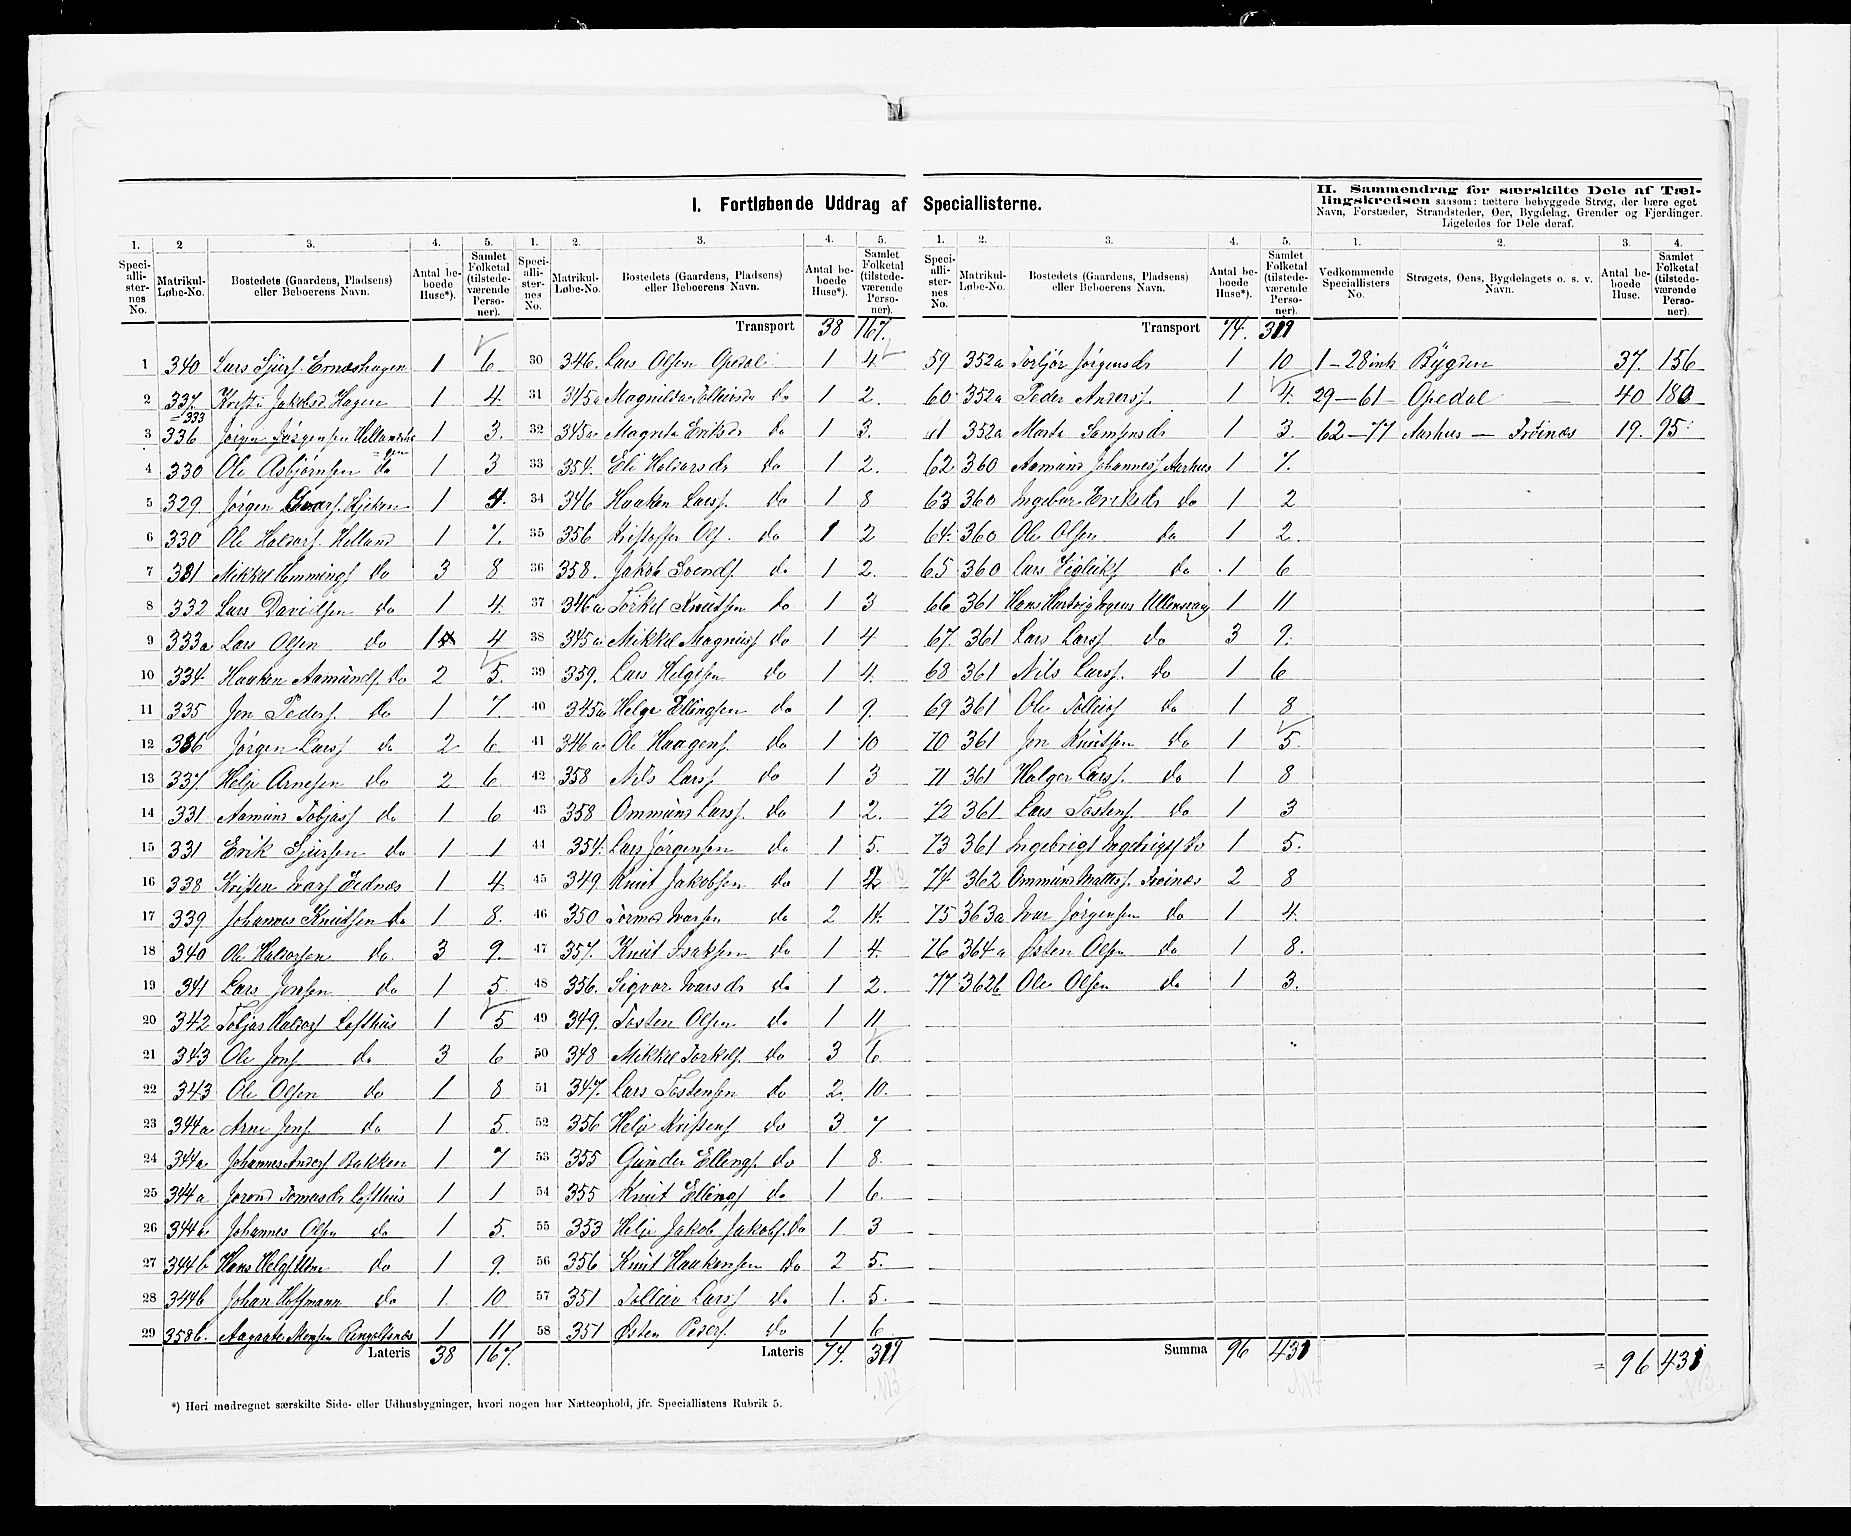 I. Fortløbende Uddrag af Speciallisterne.
II. Sammendrag for særskilte Dele af Tællingskredsen saasom: tættere bebyggede Strøg, der bære eget
Navn, Forstæder, Strandsteder, Øer, Bygdelag, Grender og Fjerdinger.
Ligeledes for Dele deraf.
1. 2 3. 4. 5.
Specialli-sternes No. Matrikul-Løbe-No. Bostedets (Gaardens, Pladsens) eller Beboerens Navn. Antal beboede Huse*). Samlet Folketal (tilstedeværende Personer).
1 340 Lars Sjurs. 1 6
2 337 Kristi Jakobsd. Hagen 1 4
=333
3 336 Jørgen Jørgensen 1 3.
4 330 Ole Asbjørnsen do 1 3
5 329 Jørgen 1 4.
6 330 Ole Haldors. Helland 1 7.
7 331 Mikkel Hemmings. do 3 8
8 332 Lars Davidsen do 1 4.
9 333a Lars Olsen do 1 4
10 334 Haaken Aamunds. do 2 5.
11 335 Jon Peders. do 1 7.
12 336 Jørgen Larss. do 2 6
13 337. Helje Arnesen do 2 6
14 331 Aamund Tobjass. do 1 6
15 331 Erik Sjursen do 1 1
16 338 Kristen Ivars. 1 4.
17 339 Johannes Knudsen do 1 8.
18 340 Ole Haldorsen do. 3 9.
19 341 Lars Jonsen do 1 5.
20 342 Tobjas Haldors. Lofthus 1 5
21 343 Ole Jons. do 3 6
22 343 Ole Olsen do 1 8
23 344a Arne Jons. do 1 5.
24 344a Johannes Anders. Bakken 1 7
25 344a Jorond Tomasdr. Lofthus 1 1
26 344a Johannes Olsen do 1 5.
27 344b Hans Helgs. Utne do 1 9.
28 344b Johan Hoffmann do 1. 10
29 358b. Aagaate Monsen 1 11
Lateris 38 167.
1. 2. 3. 4. 5.
Specialli-sternes No. Matrikul-Løbe-No. Bostedets (Gaardens, Pladsens) eller Beboerens Navn. Antal beboede Huse*). Samlet Folketal (tilstedeværende Personer).
Transport 38 167.
30 346. Lars Olsen Opedal 1 4
31 345a Magnilda Tolleivsdr. do 1 2.
32 345a Magreta Eriksdr. do 1 3.
33 354. Eli Haldorsdr. do 1 2.
34 346 Haaken Larss. do 1 8
35 356 Kristoffer Ols. do 1 2
36 358. Jakob Svends. do 1 2.
37 346a Torkel Knudsen do 1 3
38 345a Mikkel Magnuss. do 1 4
39 359. Lars Helgesen do 1 4.
40 345a Helge Ellingsen do 1 9.
41 346a Ole Haagens. do 1 10
42 358 Nils Larss. do 1 3
43 358 Ommund Larss. do 1 2.
44 354. Lars Jørgensen do 1 5.
45 349. Knut Jakobsen do 1
46 350 Tormod Ivarsen do 2 11.
47 357. Knut Isaksen do 1 4.
48 356. Sigvor Ivarsdr. do 1 2.
49 349. Tosten Olsen do 1 11
50 348 Mikkel Torkels. do 3 6.
51 347. Lars Tostensen do 2. 10.
52 356 Helje Kristens. do 3 7
53 355 Gunder Ellings. do 1 8.
54 355 Knut Ellings. do 1 6.
55 353 Helje Jakob Jakobs. do 1. 3
56 356 Knut Haakensen do 2 5.
57 351 Tolleiv Larss. do 1. 5.
58 351 Østen Peders. do 1 6.
Lateris 74. 319
1. 2. 3. 4. 5.
Specialli-sternes No. Matrikul-Løbe-No. Bostedets (Gaardens, Pladsens) eller Beboerens Navn. Antal beboede Huse*). Samlet Folketal (tilstedeværende Personer).
Transport 74. 319
59 352a Torbjør Jørgensdr. 1 10
60 352a Peder Anderss. 1 4.
61 352a Marta Samsonsdr. 1 3.
62 360 Aamund Johanness. Aarhus 1 7.
63 360 Ingebor Eriksdr. do 1 2
64. 360 Ole Olsen do 1 2.
65 360 Lars Vigleiks. do 1 6
66 361 Hans Hartvig 1 11
67. 361 Lars Larss. do 3 9.
68 361 Nils Larss. do 1 6
69 361 Ole Tolleivs. do 1 8
70 361 Jon Knutsen do 1 5.
71 361 Holger Larss. do 1 8
72 361 Lars Tostens. do 1 3
73 361 Ingebrigt Ingebrigts. do 1 5.
74 362 Ommund Mattiss. Froines 2 8
75 363a Ivar Jørgensen do 1 4.
76 364a Østen Olsen do 1 8.
77 362b Ole Olsen do 1 3.
Summa 96 431
1. 2. 3. 4.
Vedkommende Speciallisters No. Strøgets, Øens, Bygdelagets o. s. v. Navn. Antal beboede Huse. Samlet Folketal (tilstedeværende Personer).
1–28 ink Bygden 37. 156
29–61 Opedal — 40 180
62–77 Aarhus — Froinæs 19. 95
= 96 431
*) Heri medregnet særskilte Side- eller Udhusbygninger, hvori nogen har Natteophold, jfr. Speciallistens Rubrik 5.